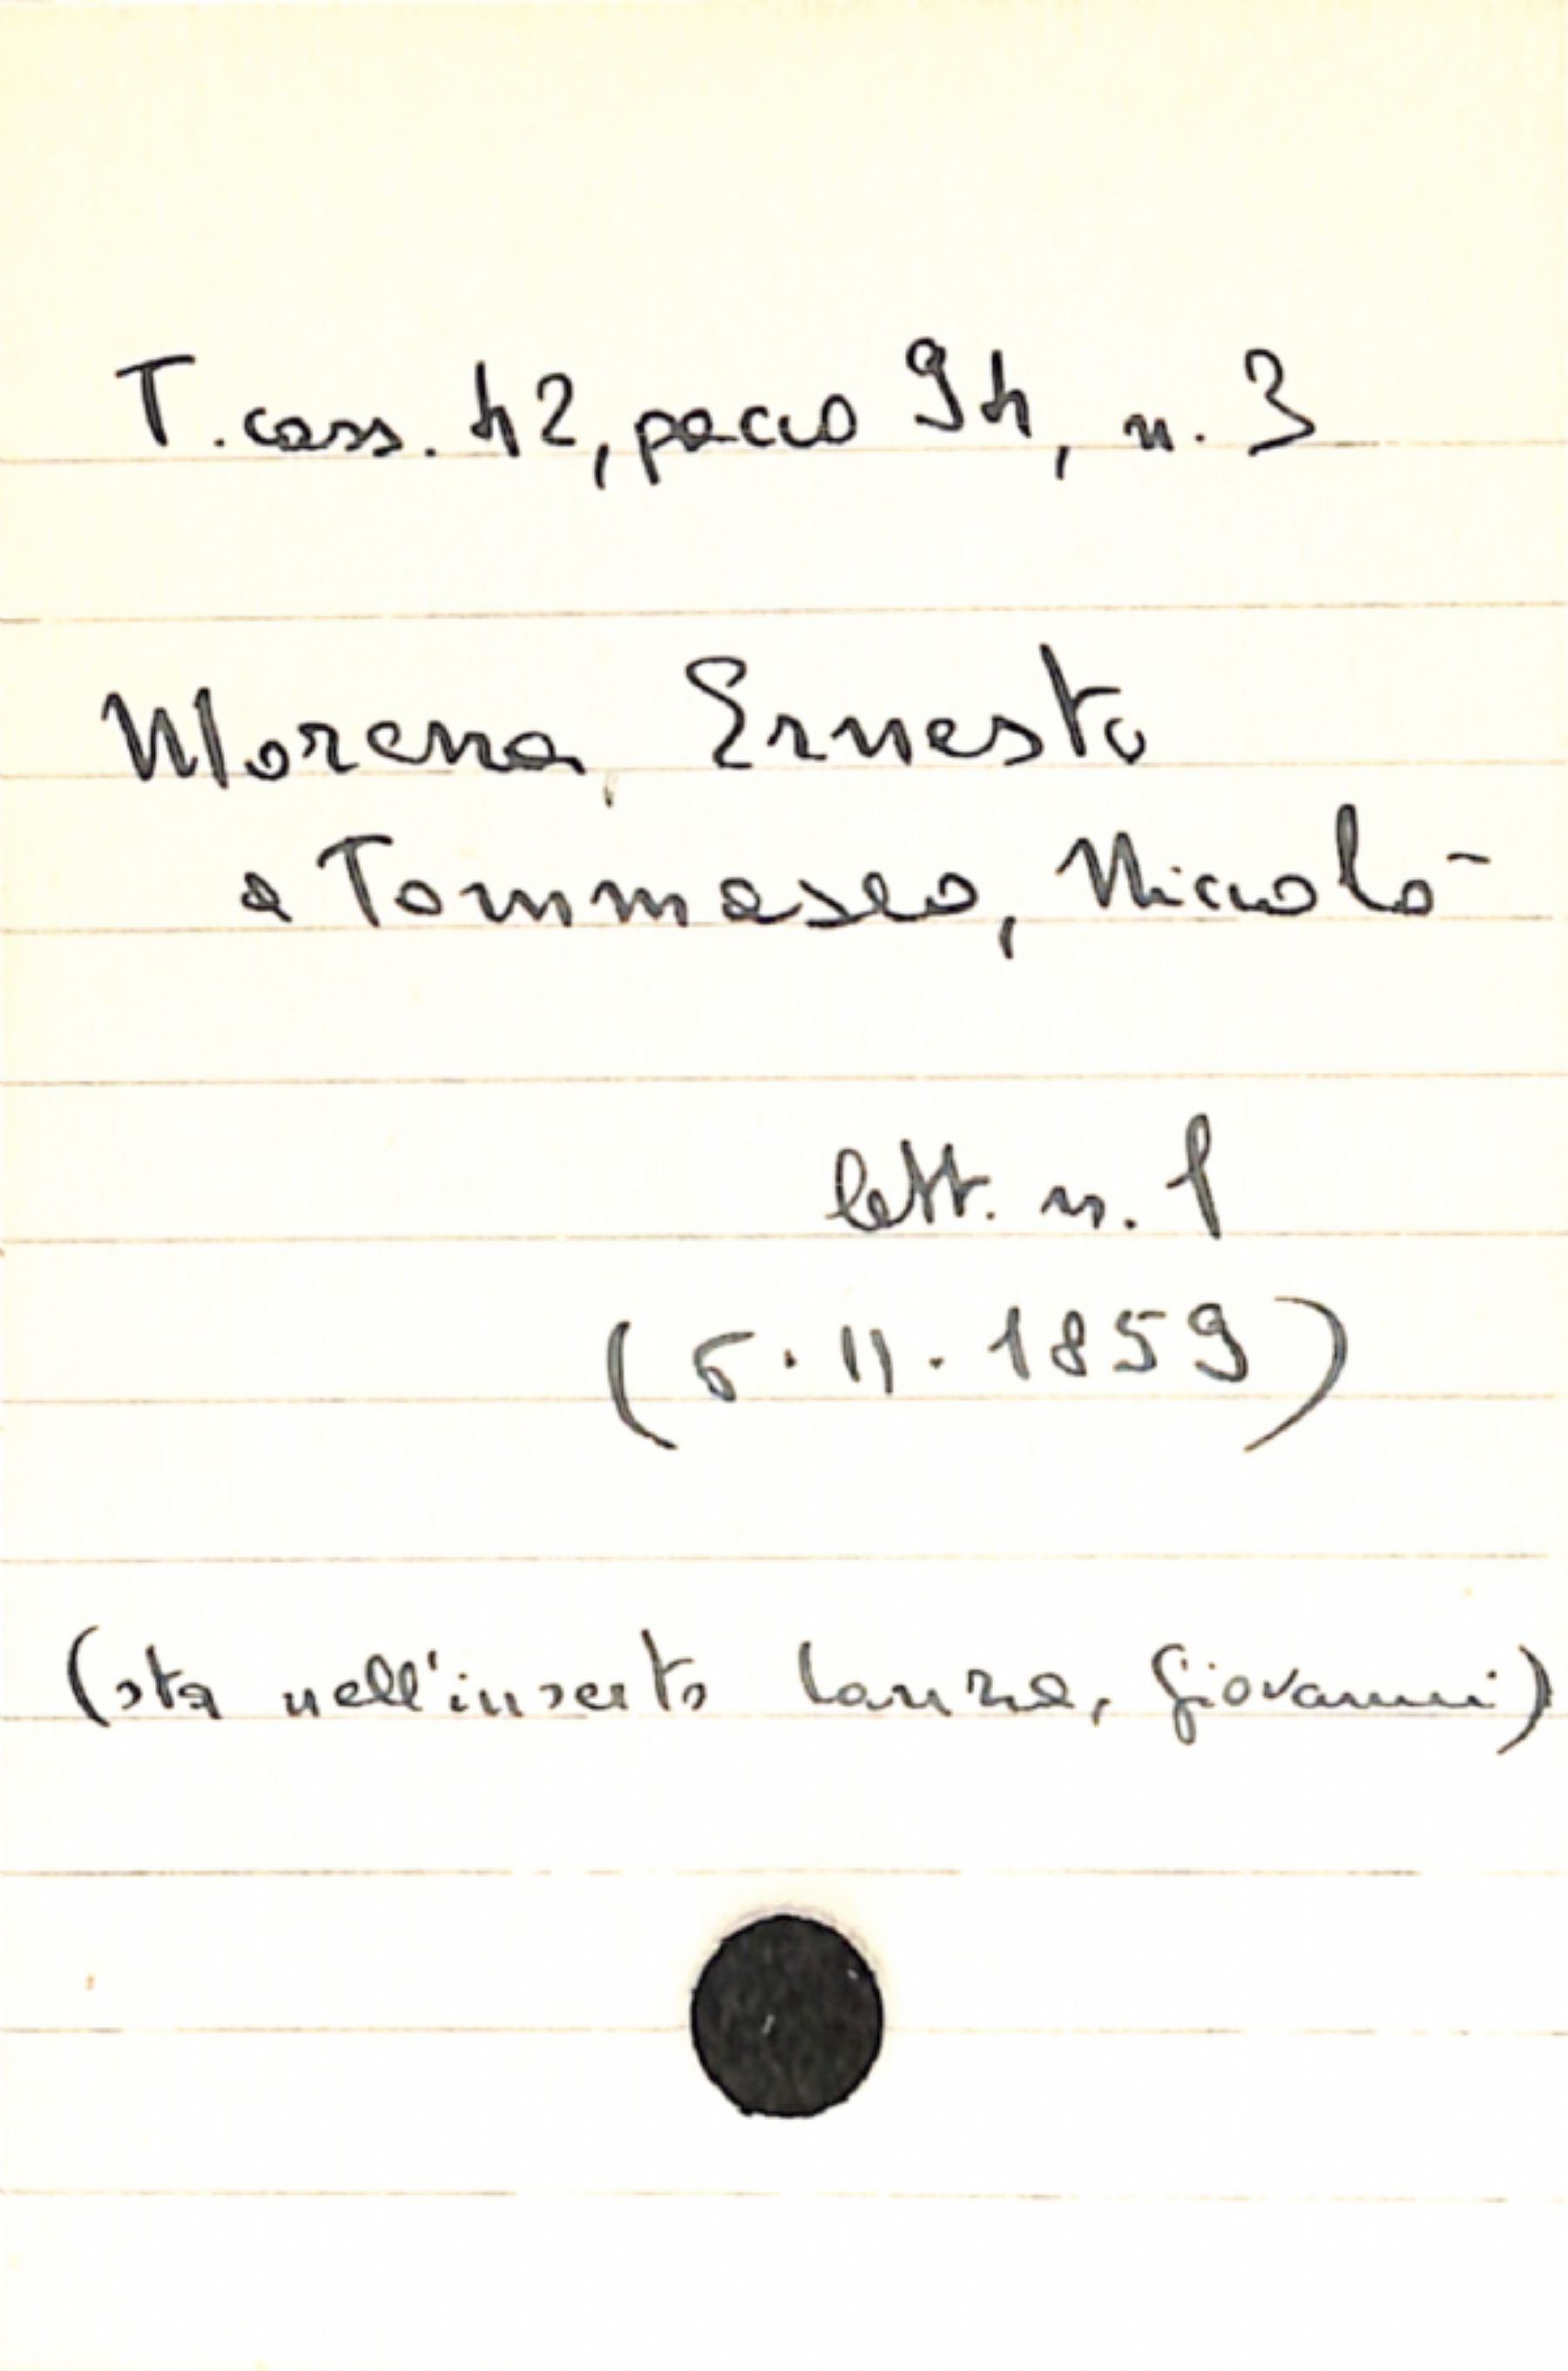 T. cass. 42, pacco 94, n. 3
Morena, Ernesto
a Tommaseo, Niccolò
lett. n. 1
(5.11.1859)
(sta nell'inserto Lanza, Giovanni)